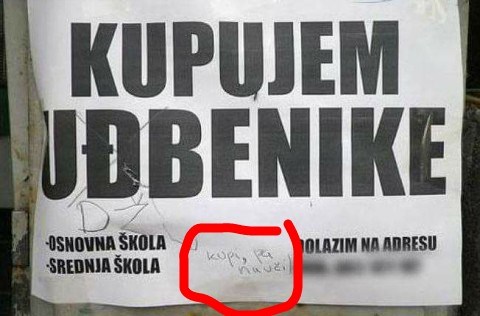 KUPUJEM
UĐBENIKE
DŽ
-OSNOVNA ŠKOLA
-SREDNJA ŠKOLA
kupi, pa
nauči!
DOLAZIM NA ADRESU